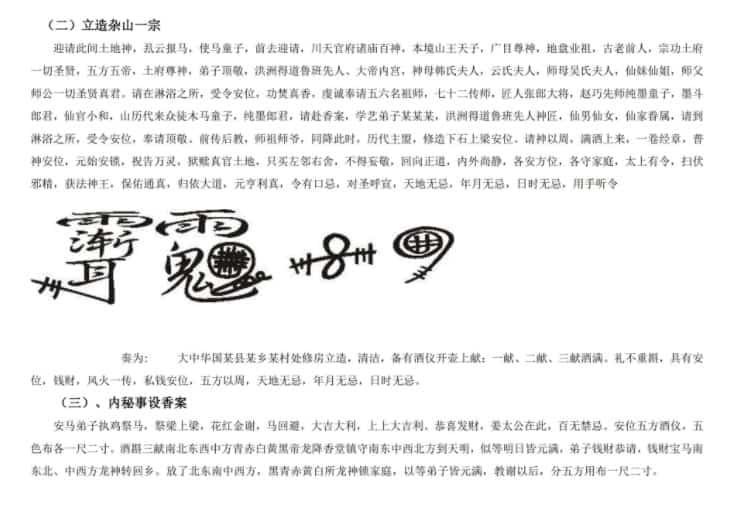 （二）立造杂山一宗
迎请此间土地神，乩云报马，使马童子，前去迎请，川天官府诸庙百神，本境山王天子，广目尊神，地盘业祖，古老前人，宗功土府
一切圣贤，五方五帝，土府尊神，弟子顶敬，洪洲得道鲁班先人、大帝内宫，神母韩氏夫人，云氏夫人，师母吴氏夫人，仙妹仙姐，师父
师公一切圣贤真君。请在淋浴之所，受令安位，功焚真香，虔诚奉请五六名祖师，七十二传师，匠人张郎大将，赵巧先师纯墨童子，墨斗
郎君，仙官小和，山历代来众徒木马童子，纯墨郎君，请赴香案，学艺弟子某某某，洪洲得道鲁班先人神匠，仙男仙女，仙家眷属，请到
淋浴之所，受令安位，奉请顶敬。前传后教，师祖师爷，同降此时。历代主盟，修造下石上梁安位。请神以周，满酒上来，一卷经章，普
神安位，元始安锁，祝告万灵，狱赎真官土地，只买左邻右舍，不得妄敬，回向正道，内外尚静，各安方位，各守家庭，太上有令，扫伏
邪精，获法神王，保佑通真，归依大道，元亨利真，令有口忌，对圣呼宣，天地无忌，年月无忌，日时无忌，用手听令
奏为： 大中华国某县某乡某村处修房立造，清洁，备有酒仪开壶上献：一献、二献、三献酒满。礼不重斟，具有安
位，钱财，风火一传，私钱安位，五方以周，天地无忌，年月无忌，日时无忌。
（三）、内秘事设香案
安马弟子执鸡祭马，祭梁上梁，花红金谢，马回避，大吉大利，上上大吉利。恭喜发财，姜太公在此，百无禁忌。安位五方酒仪，五
色布各一尺二寸。酒斟三献南北东西中方青赤白黄黑帝龙降香堂镇守南东中西北方到天明，似等明日皆元满，弟子钱财恭请，钱财宝马南
东北、中西方龙神转回乡。放了北东南中西方，黑青赤黄白所龙神锁家庭，以等弟子皆元满，教谢以后，分五方用布一尺二寸。